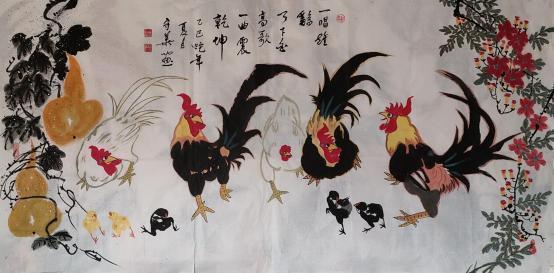 一唱雄
鷄
天下白
高歌
一曲震
乾坤
乙巳蛇年
夏月